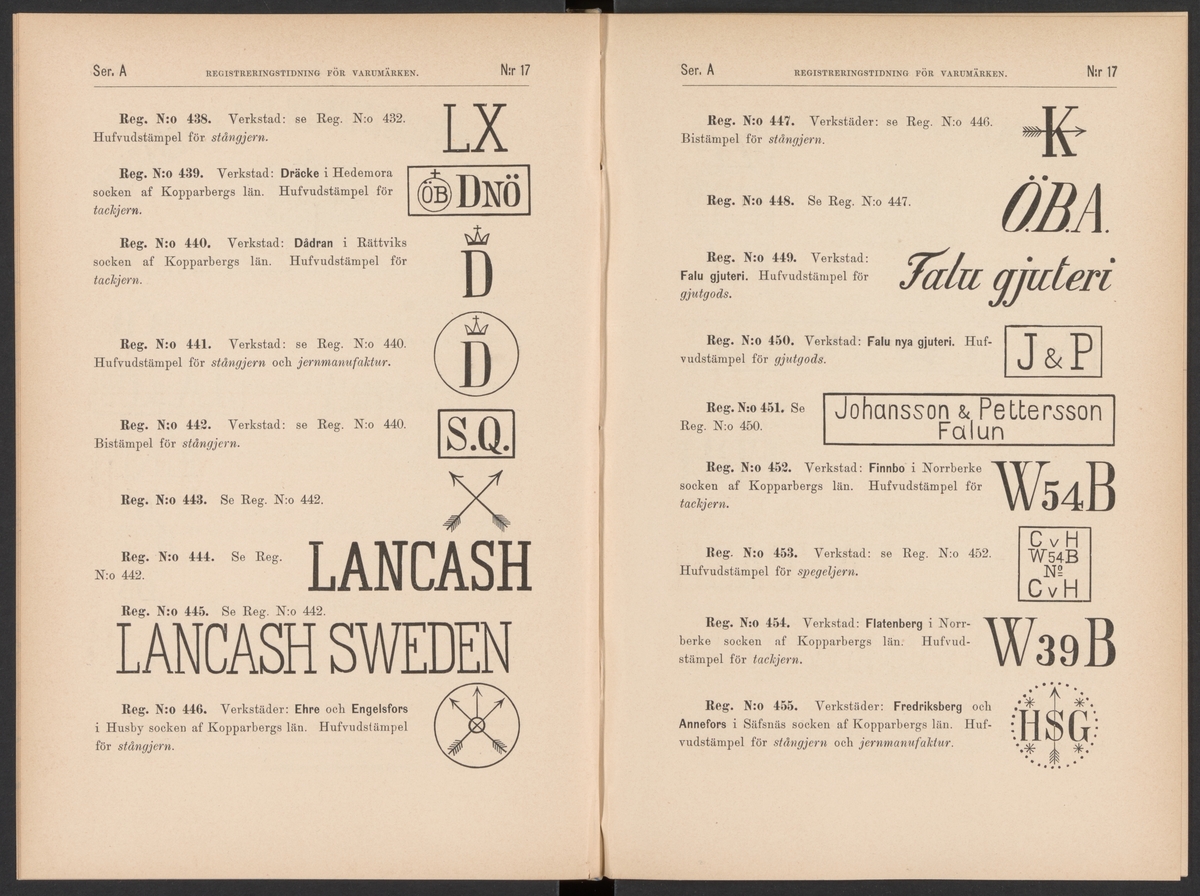 Ser. A REGISTRERINGSTIDNING FÖR VARUMÄRKEN. N:r 17
Reg. N:o 438. Verkstad: se Reg. N:o 432.
Hufvudstämpel för stångjern.
LX
Reg. N:o 439. Verkstad: Dräcke i Hedemora
socken af Kopparbergs län. Hufvudstämpel för
tackjern.
ÖB DNÖ
Reg. N:o 440. Verkstad: Dådran i Rättviks
socken af Kopparbergs län. Hufvudstämpel för
tackjern.
D
Reg. N:o 441. Verkstad: se Reg. N:o 440.
Hufvudstämpel för stångjern och jernmanufaktur.
D
Reg. N:o 442. Verkstad: se Reg. N:o 440.
Bistämpel för stångjern.
S.Q.
Reg. N:o 443. Se Reg. N:o 442.
Reg. N:o 444. Se Reg.
N:o 442.
LANCASH
Reg. N:o 445. Se Reg. N:o 442.
LANCASH SWEDEN
Reg. N:o 446. Verkstäder: Ehre och Engelsfors
i Husby socken af Kopparbergs län. Hufvudstämpel
för stångjern.
Ser. A REGISTRERINGSTIDNING FÖR VARUMÄRKEN. N:r 17
Reg. N:o 447. Verkstäder: se Reg. N:o 446.
Bistämpel för stångjern.
K
Reg. N:o 448. Se Reg. N:o 447.
Ö.B.A.
Reg. N:o 449. Verkstad:
Falu gjuteri. Hufvudstämpel för
gjutgods.
Falu gjuteri
Reg. N:o 450. Verkstad: Falu nya gjuteri. Huf-
vudstämpel för gjutgods.
J & P
Reg. N:o 451. Se
Reg. N:o 450.
Johansson & Pettersson
Falun
Reg. N:o 452. Verkstad: Finnbo i Norrberke
socken af Kopparbergs län. Hufvudstämpel för
tackjern.
W54B
Reg. N:o 453. Verkstad: se Reg. N:o 452.
Hufvudstämpel för spegeljern.
C v H
W54B
Nº
C v H
Reg. N:o 454. Verkstad: Flatenberg i Norr-
berke socken af Kopparbergs län. Hufvud-
stämpel för tackjern.
W39B
Reg. N:o 455. Verkstäder: Fredriksberg och
Annefors i Säfsnäs socken af Kopparbergs län. Huf-
vudstämpel för stångjern och jernmanufaktur.
HSG